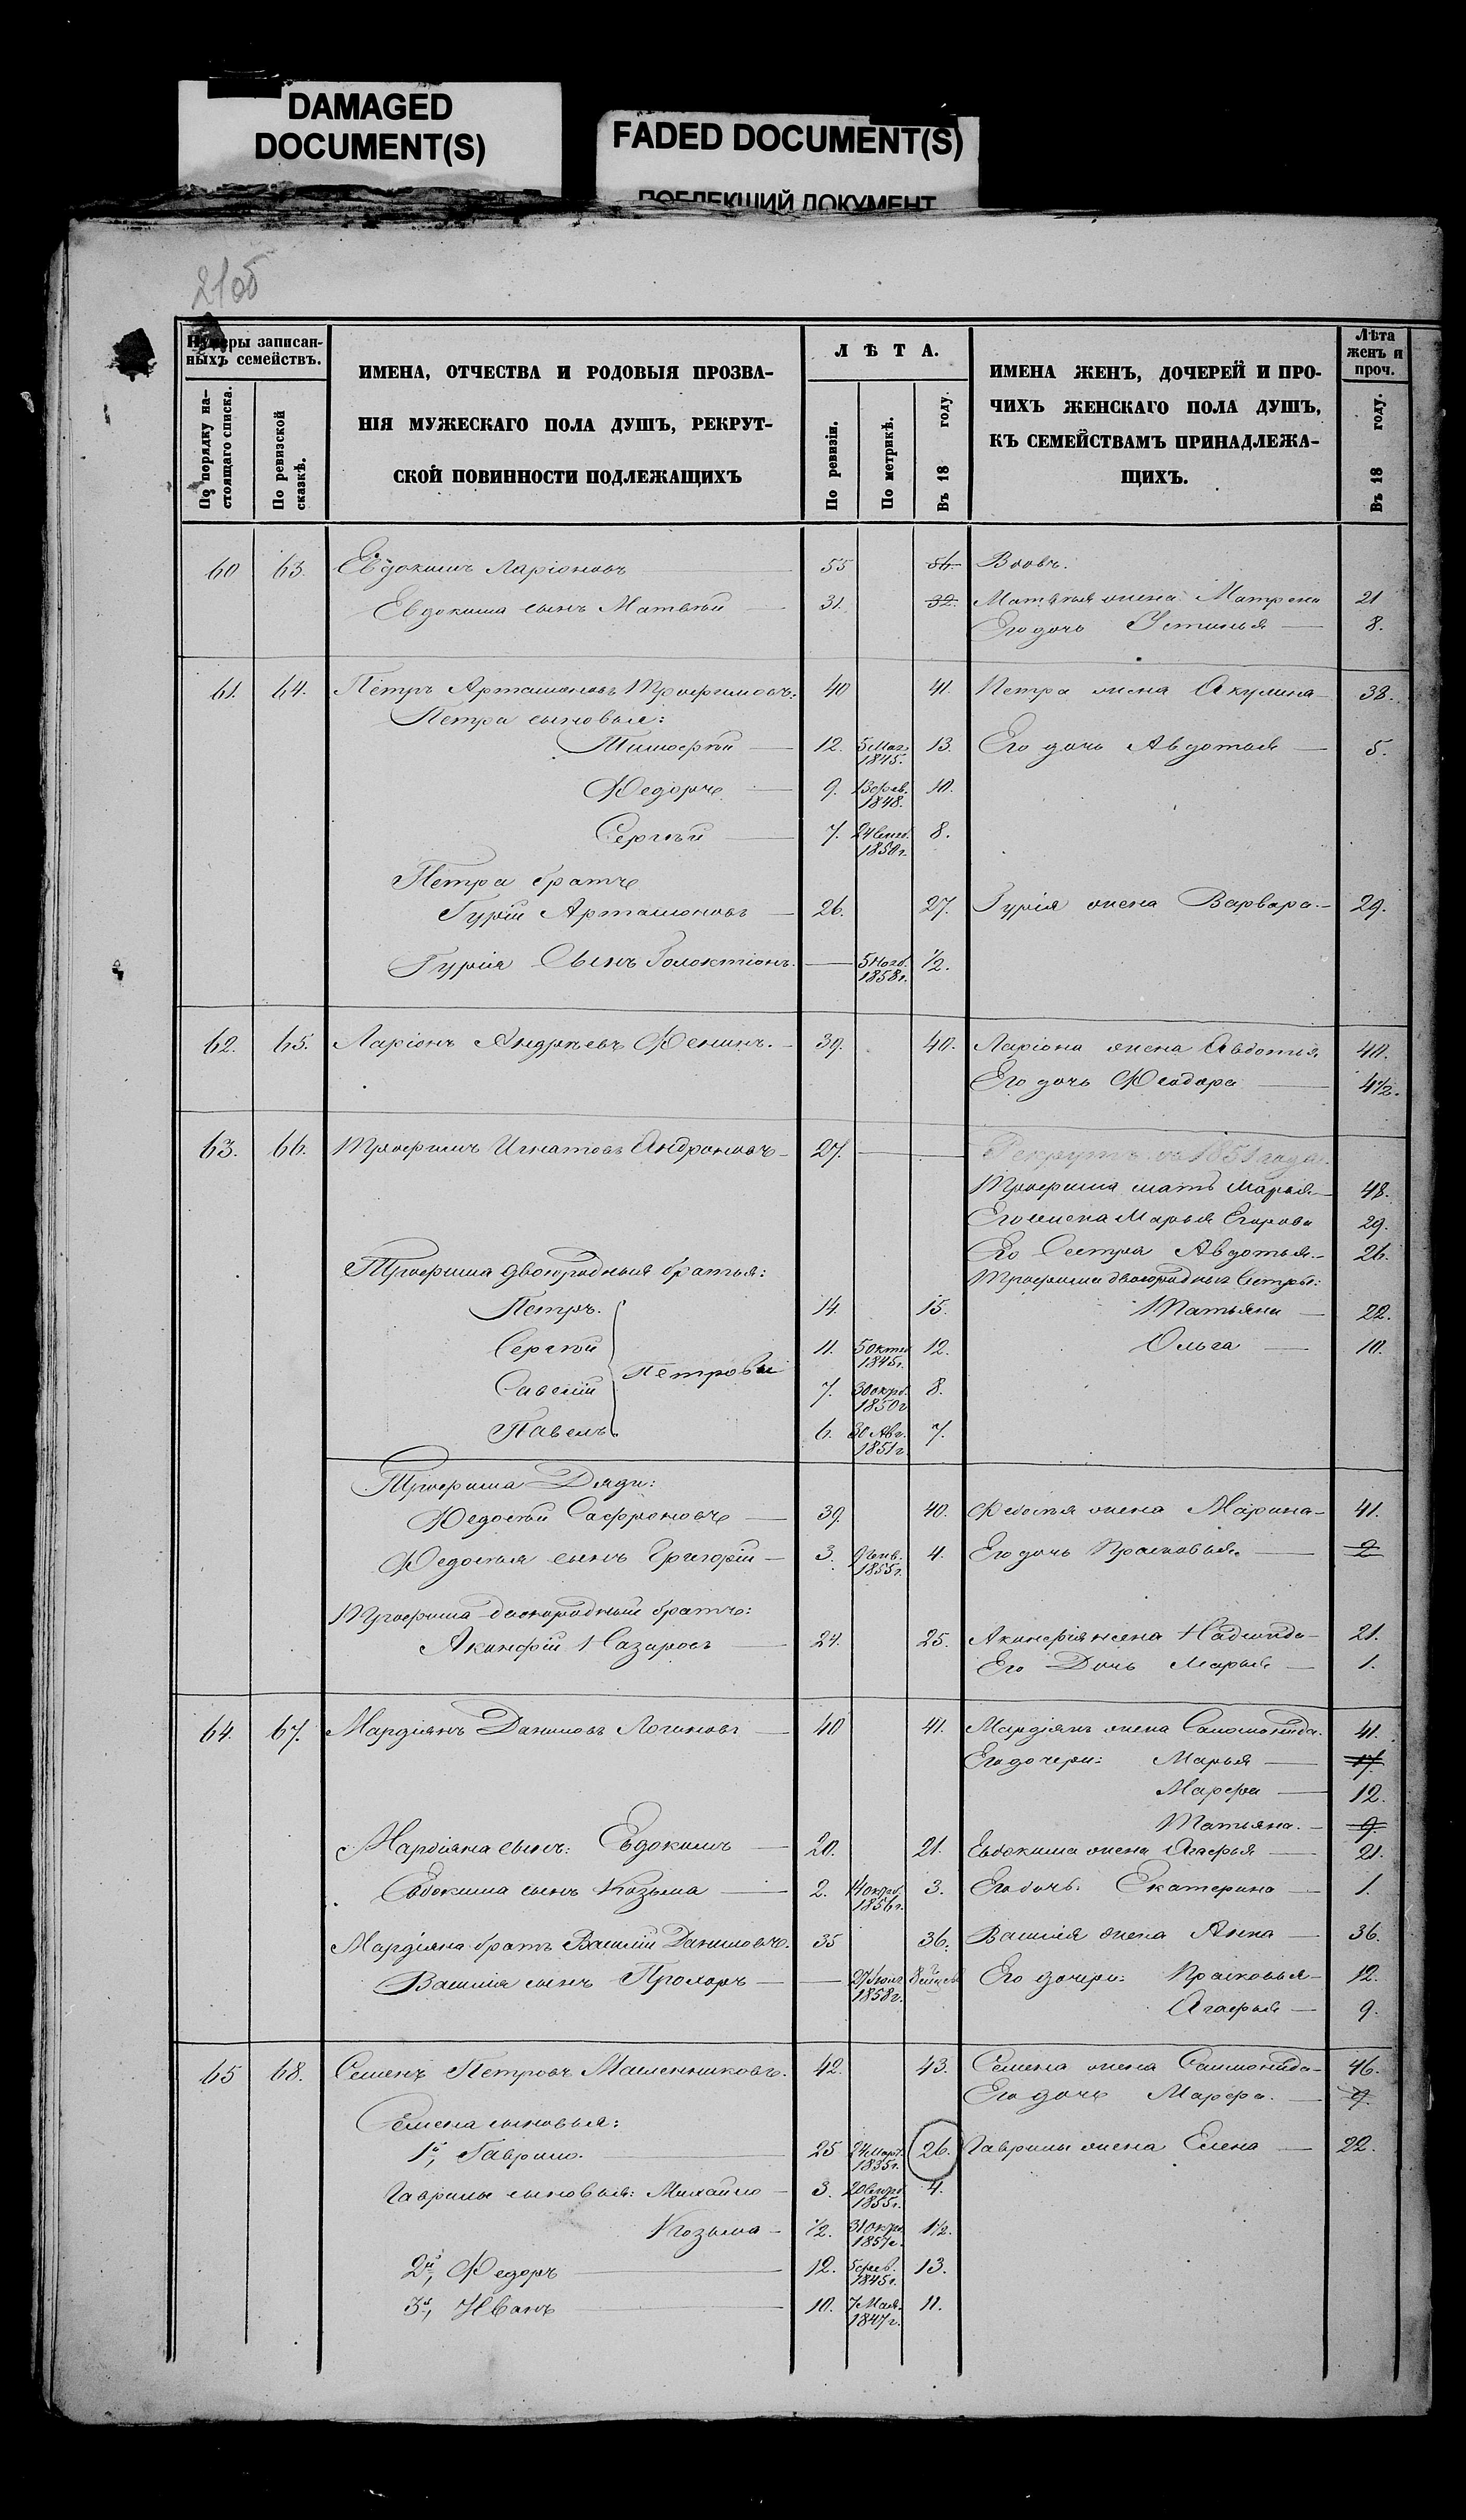 DAMAGED
DOCUMENT(S)
FADED DOCUMENT(S)
ПОБЛЕКШИЙ ДОКУМЕНТ
21об
Нумеры записан-
ныхъ семействъ.
По порядку на-
стоящаго списка.
По ревизской
сказкѣ.
ИМЕНА, ОТЧЕСТВА И РОДОВЫЯ ПРОЗВА-
НІЯ МУЖЕСКАГО ПОЛА ДУШЪ, РЕКРУТ-
СКОЙ ПОВИННОСТИ ПОДЛЕЖАЩИХЪ
ЛѢТА.
По ревизіи.
По метрикѣ.
Въ 18 году.
ИМЕНА ЖЕНЪ, ДОЧЕРЕЙ И ПРО-
ЧИХЪ ЖЕНСКАГО ПОЛА ДУШЪ,
КЪ СЕМЕЙСТВАМЪ ПРИНАДЛЕЖА-
ЩИХЪ.
Лѣта
женъ и
проч.
Въ 18 году.
60 63. Евдокимъ Ларіоновъ 55 56 Вдовъ.
Евдокима сынъ Матвѣй 31. 32. Матвѣя жена Матрена 21
Его дочь Устинья 8.
61. 64. Петръ Артамоновъ Трофимовъ: 40 41. Петра жена Акулина 38.
Петра сыновья:
Тимофѣй 12. 5 Мая 1845. 13. Его дочь Авдотья 5.
Федоръ 9. 13 фев. 1848. 10.
Сергѣй 7. 24 Сент. 1850 г. 8.
Петра братъ
Гурій Артамоновъ 26. 27. Гурія жена Варвара 29.
Гурія Сынъ Галактіонъ 5 Нояб. 1858 г. 1/2.
62. 65. Ларіонъ Андреевъ Фенинъ. 39. 40. Ларіона жена Авдотья 40.
Его дочь Феодора 4 1/2.
63. 66. Трофимъ Игнатовъ Андроновъ 27. Рекрутъ въ 1851 года.
Трофима мать Марья 48.
Его жена Марья Егорова 29.
Его Сестра Авдотья 26.
Трофима двоюродныя братья: Трофима двоюродныя Сестры:
Петръ. 14. 15. Татьяна 22.
Сергѣй 11. 5 Октя 1845 г. 12. Ольга 10.
Петровы
Савелій 7. 30 1850 г 8.
Павелъ 6. 30 Авг. 1851 г. 7.
Трофима Дяди:
Федосѣй Сафроновъ 39. 40. Федосѣя жена Марина 41.
Федосѣя сынъ Григорій 3. 9 Генв. 1855 г. 4. Его дочь Прасковья 2
Трофима двоюродный братъ:
Акинфій Назаровъ 24. 25. Акинфія жена Надежда 21.
Его Дочь Марья 1.
64. 67. Мардіянъ Даниловъ Логиновъ 40 41. Мардіянъ жена Соломонида. 41.
Его дочери: Марья 17.
Марфа 12.
Татьяна. 9.
Мардіяна сынъ: Евдокимъ 20. 21. Евдокима жена Агафья 21.
Евдокима сынъ Козьма 2. 14 1856 г. 3. Его дочь Екатерина 1.
Мардіяна братъ Василій Даниловъ. 35 36. Василія жена Анна 36.
Василія сынъ Прохоръ 27 1858 г. Его дочери: Прасковья 12.
Агафья 9.
65 68. Семенъ Петровъ Масленниковъ. 42. 43. Семена жена Соломонида 46.
Его дочь Марфа. 9.
Семена сыновья:
1й, Гаврило. 25 24 Март. 1835 г. 26. Гаврилы жена Елена 22.
Гаврилы сыновья: Михайло 3. 20 1855 г. 4.
Козьма 1/2. 31 Октя 1857 г. 1 1/2.
2й, Федоръ 12. 5 фев. 1845 г. 13.
3й, Иванъ 10. 7 Мая 1847 г. 11.